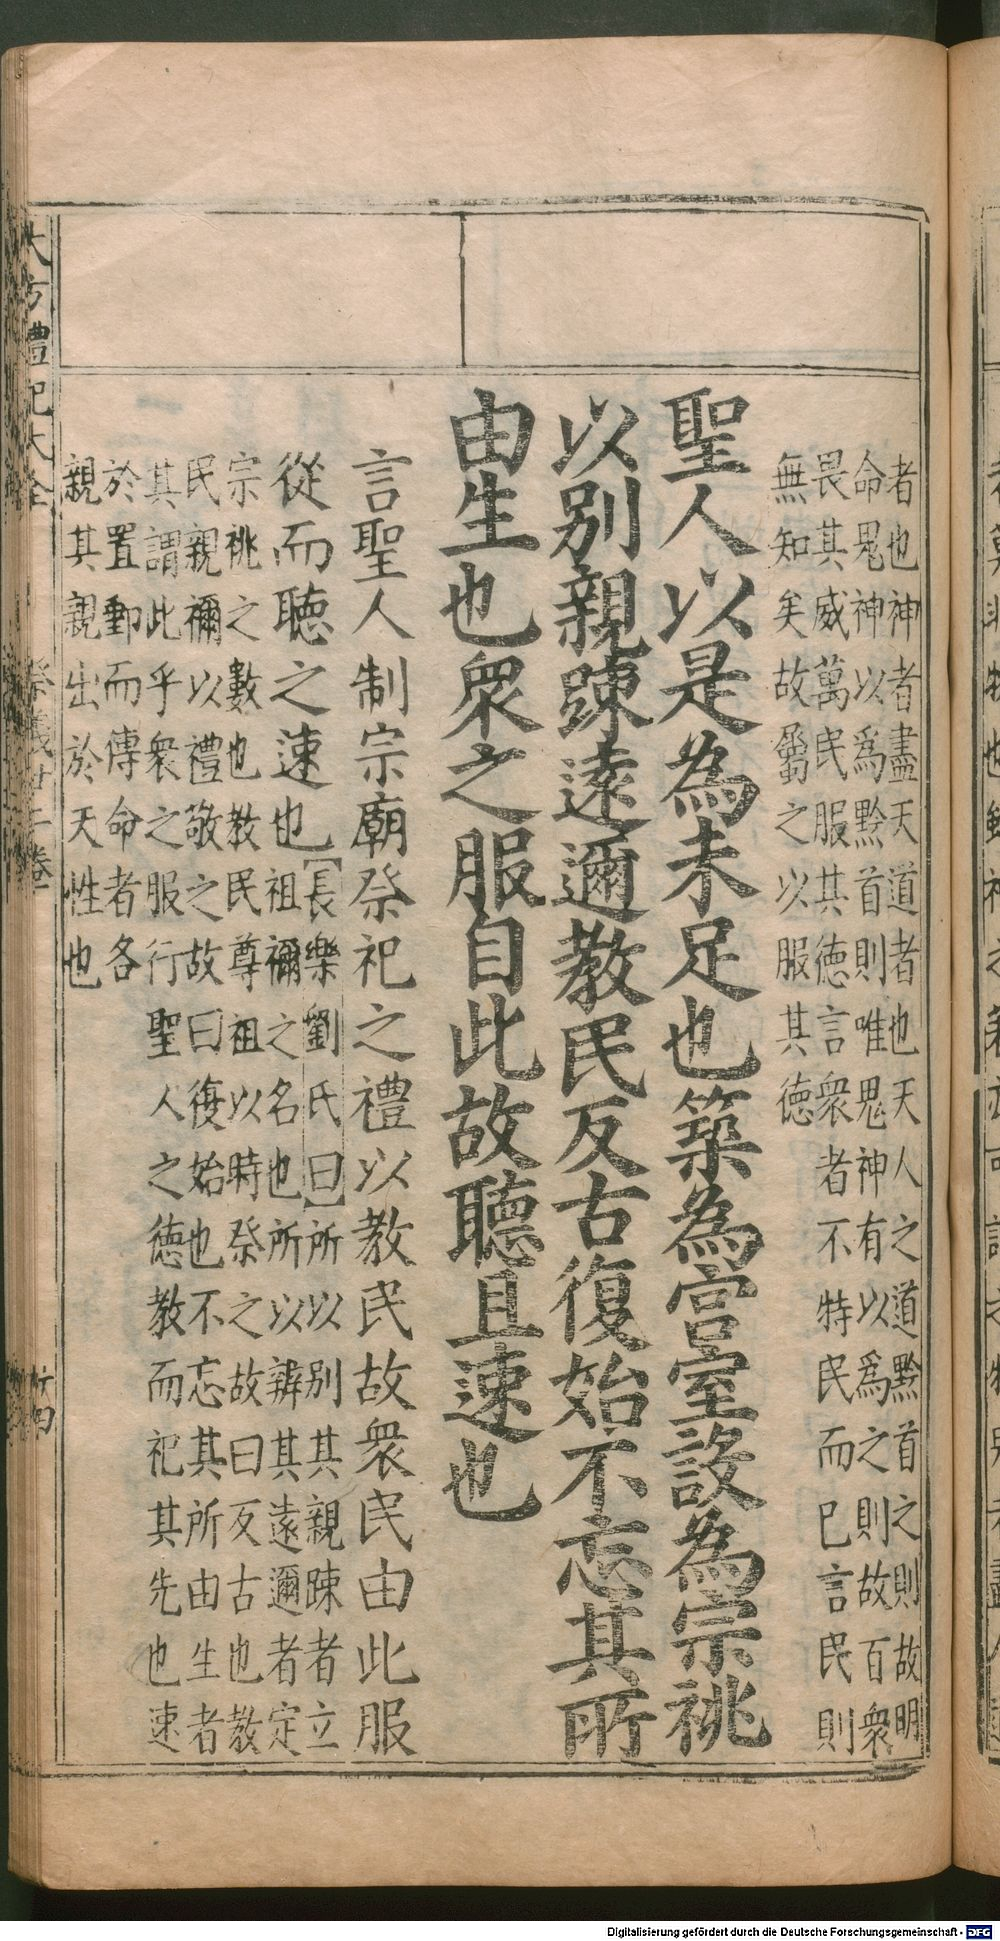 者也神者盡天道者也天人之道黔首之則故明
命鬼神以爲黔首則唯鬼神有以爲之則故百衆
畏其威萬民服其德言衆者不特民而已言民則
無知矣故屬之以服其德
聖人以是為未足也築為宮室設為宗祧
以别親踈逺邇教民反古復始不忘其所
由生也衆之服自此故聽且速也
言聖人制宗廟祭祀之禮以教民故衆民由此服
從而聽之速也【長樂劉氏曰】所以別其親踈者立
祖禰之名也所以辨其逺邇者定
宗祧之數也教民尊祖以時祭之故曰反古也教
民親禰以禮敬之故曰復始也不忘其所由生者
其謂此乎衆之服行聖人之德教而祀其先也速
於置郵而傳命者各
親其親出於天性也
大方禮記大全
祭義廿二卷
Digitalisierung gefördert durch die Deutsche Forschungsgemeinschaft - DFG